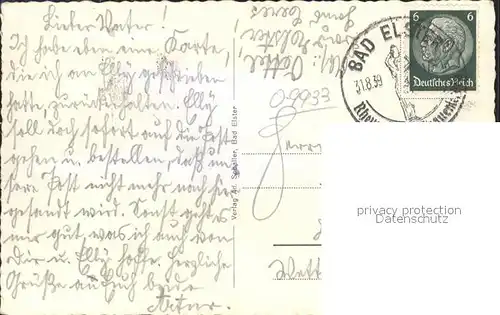 Lieber Vater!
Ich habe eben eine Karte,
die ich an Elly geschrieben
hatte, zurückhalten. Elly
soll doch sofort auf die Post
gehen u. bestellen, daß un-
sere Post nicht mehr nach hier
gesandt wird. Sonst geht es
mir gut, was ich auch von
Dir u. Elly hoffe. Herzliche
Grüße an Euch beide
Verlag Ad. Schüller, Bad Elster
09933
BAD ELSTER
31.8.39
6 6
Deutsches Reich
Herrn
privacy protection
Datenschutz